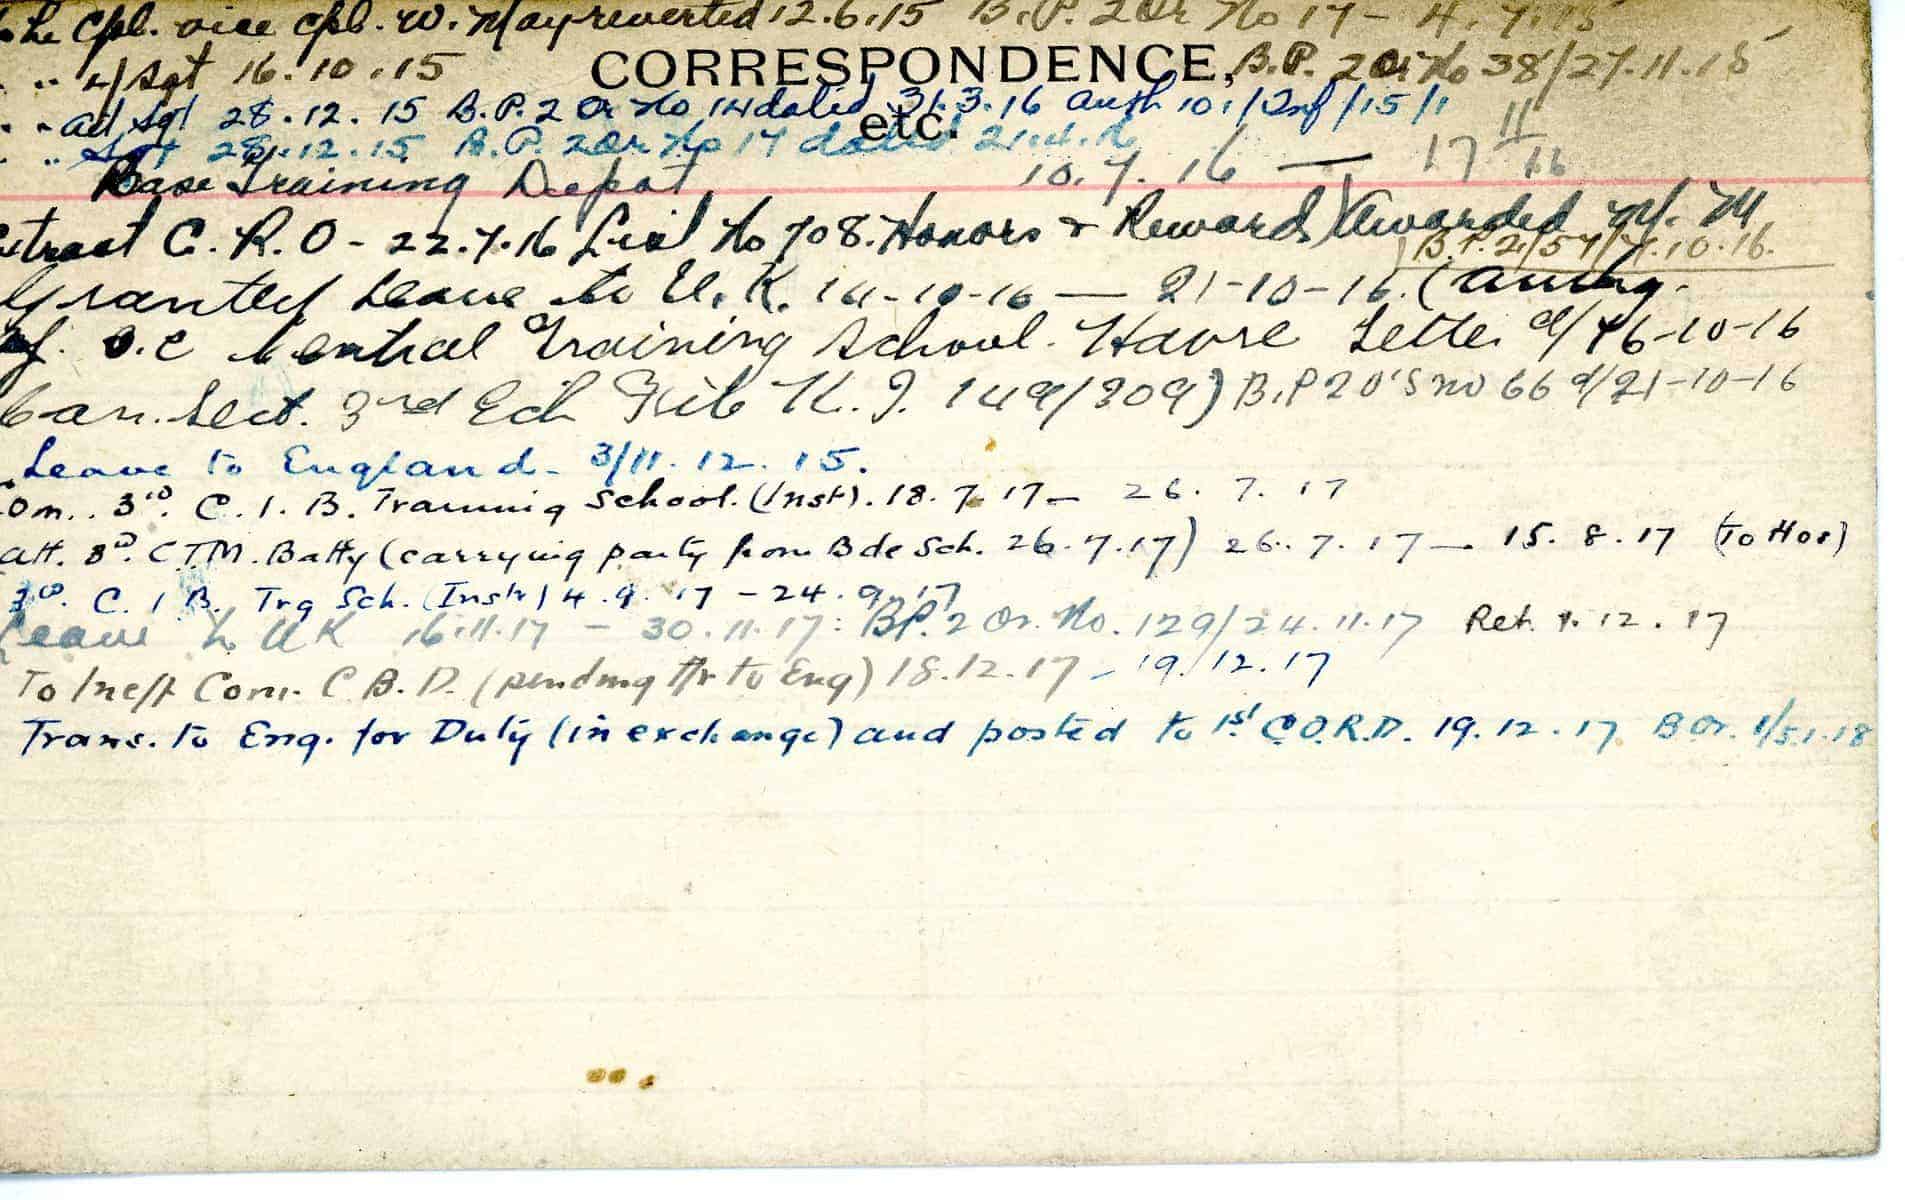 Cpl. vice Cpl. W. May reverted 12.6.15 B.P. 2 Or No 17 - 4.7.15
" " L/Sgt 16.10.15 CORRESPONDENCE, B.P. 2 Or No 38/27.11.15
" " Sgt 28.12.15 B.P. 2 Or No 14 dated 31.3.16 Auth 101/Inf/15/1
etc.
" " Sgt 28.12.15 B.P. 2 Or No 17 dated 21.4.16
Base Training Depot 10.7.16 — 17 11 16
C.R.O - 22.7.16 List No 708. Honors & Rewards Awarded M.M
B.P. 2/57/7.10.16.
Granted Leave to U.K. 10-16 — 21-10-16. (
O.C Central Training School. Havre Letter d/ 16-10-16
Can. Sect. 3rd Ech K.J. 149/309) B.P 2 O'S no 66 d/21-10-16
Leave to England - 3/11.12.15.
3rd. C.I.B. Training School. (Inst). 18.7.17 - 26.7.17
Att. 3rd. C.T.M. Batty (carrying party from Bde Sch. 26.7.17) 26.7.17 — 15.8.17 (To Hos)
3rd. C.I.B. Trg Sch. (Instr) 4.9.17 - 24.9.17
Leave to UK 16.11.17 - 30.11.17: BP. 2 Or. No. 129/24.11.17 Ret. 1.12.17
To Ineff Com. C.B.D. (pending tfr to Eng) 18.12.17 - 19.12.17
Trans. to Eng. for Duty (in exchange) and posted to 1st C.O.R.D. 19.12.17 B Or. 1/5.1.18